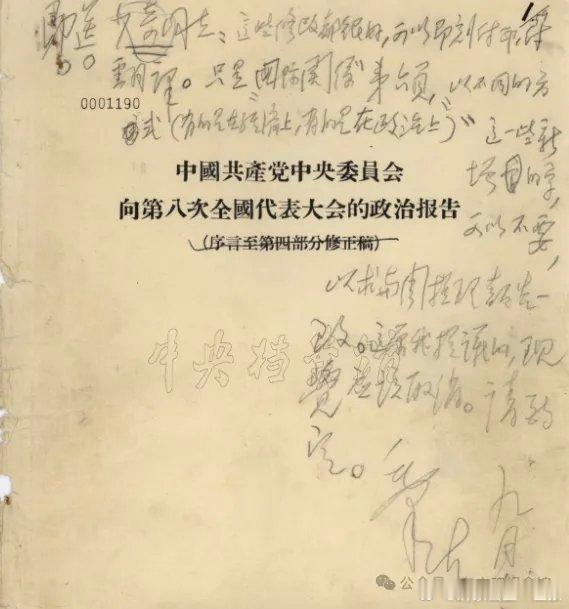 即送
少奇同志：这些修改都很好，可以即刻付印，并
翻译。只是“国际关系”第六页，“以不同的方
式（有的是在经济上，有的是在政治上）”这一些新
0001190
增加的字，
可以不要，
中國共產党中央委員会
向第八次全國代表大会的政治报告
（序言至第四部分修正稿）
以求与周
一
致。这是我提议的，现
觉
应该取消。请酌
定。
毛
九月
中央档
公